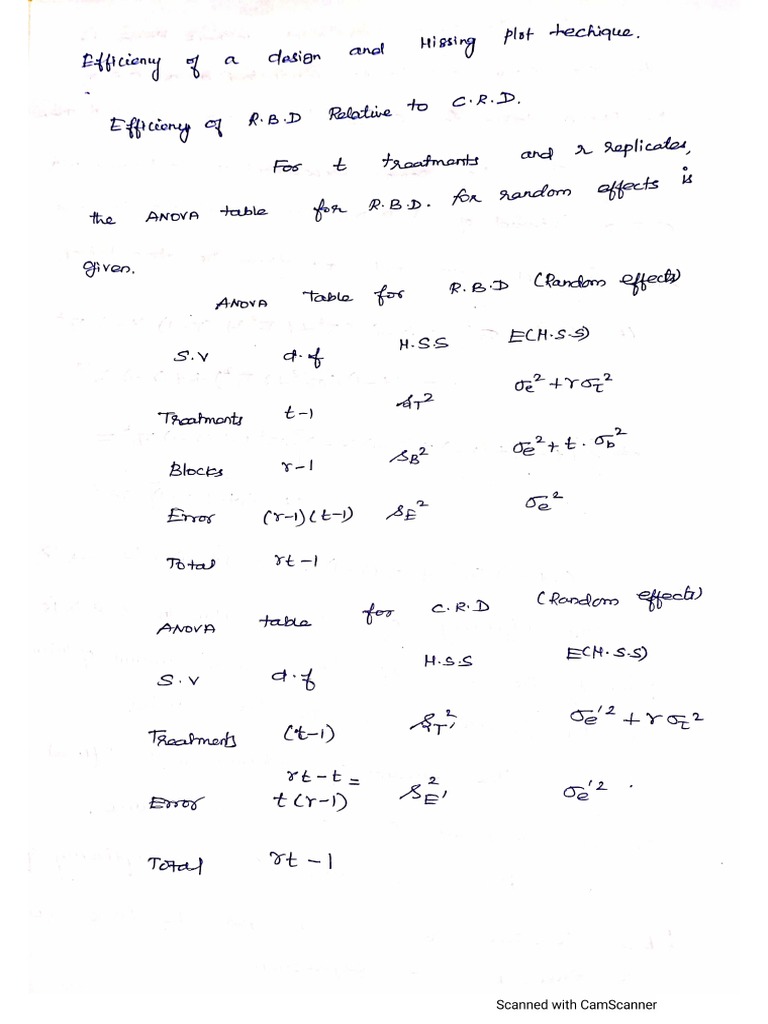 Efficieny of a dasign and Missing plot techique.
Efficieny of R.B.D Relative to C.R.D.
For t treatments and r replicates,
the ANOVA table for R.B.D. for random effects is
given.
ANOVA table for R.B.D (Random effects)
S.V d.f M.S.S E(M.S.S)
Treatments t-1 s_T² σe² + rσ_τ²
Blocks r-1 s_B² σe² + t.σb²
Error (r-1)(t-1) s_E² σe²
Total rt-1
ANOVA table for C.R.D (Random effects)
S.V d.f M.S.S E(M.S.S)
Treatments (t-1) s_T'² σe'² + rσ_τ²
rt-t =
Error t(r-1) s_E'² σe'²
Total rt-1
Scanned with CamScanner